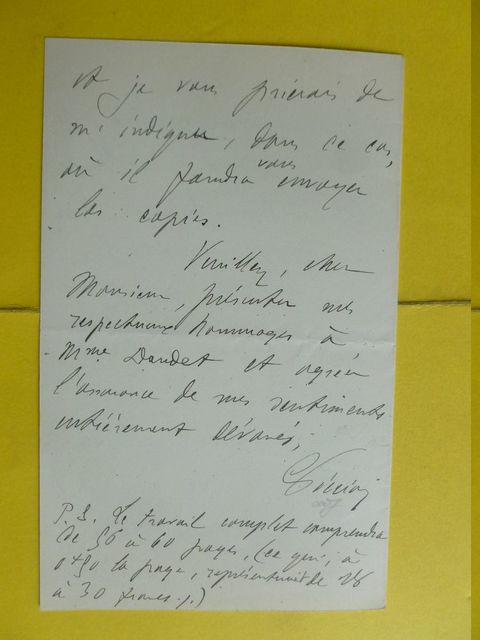 et je vous prierais de
m'indiquer, dans ce cas,
où il faudra vous envoyer
les copies.
Veuillez, cher
Monsieur, présenter mes
respectueux hommages à
Mme Daudet et agréer
l'assurance de mes sentiments
entièrement dévoués,
P.S. Le travail complet comprendra
de 56 à 60 pages, (ce qui, à
0f50 la page, représenterait de 28
à 30 francs.)